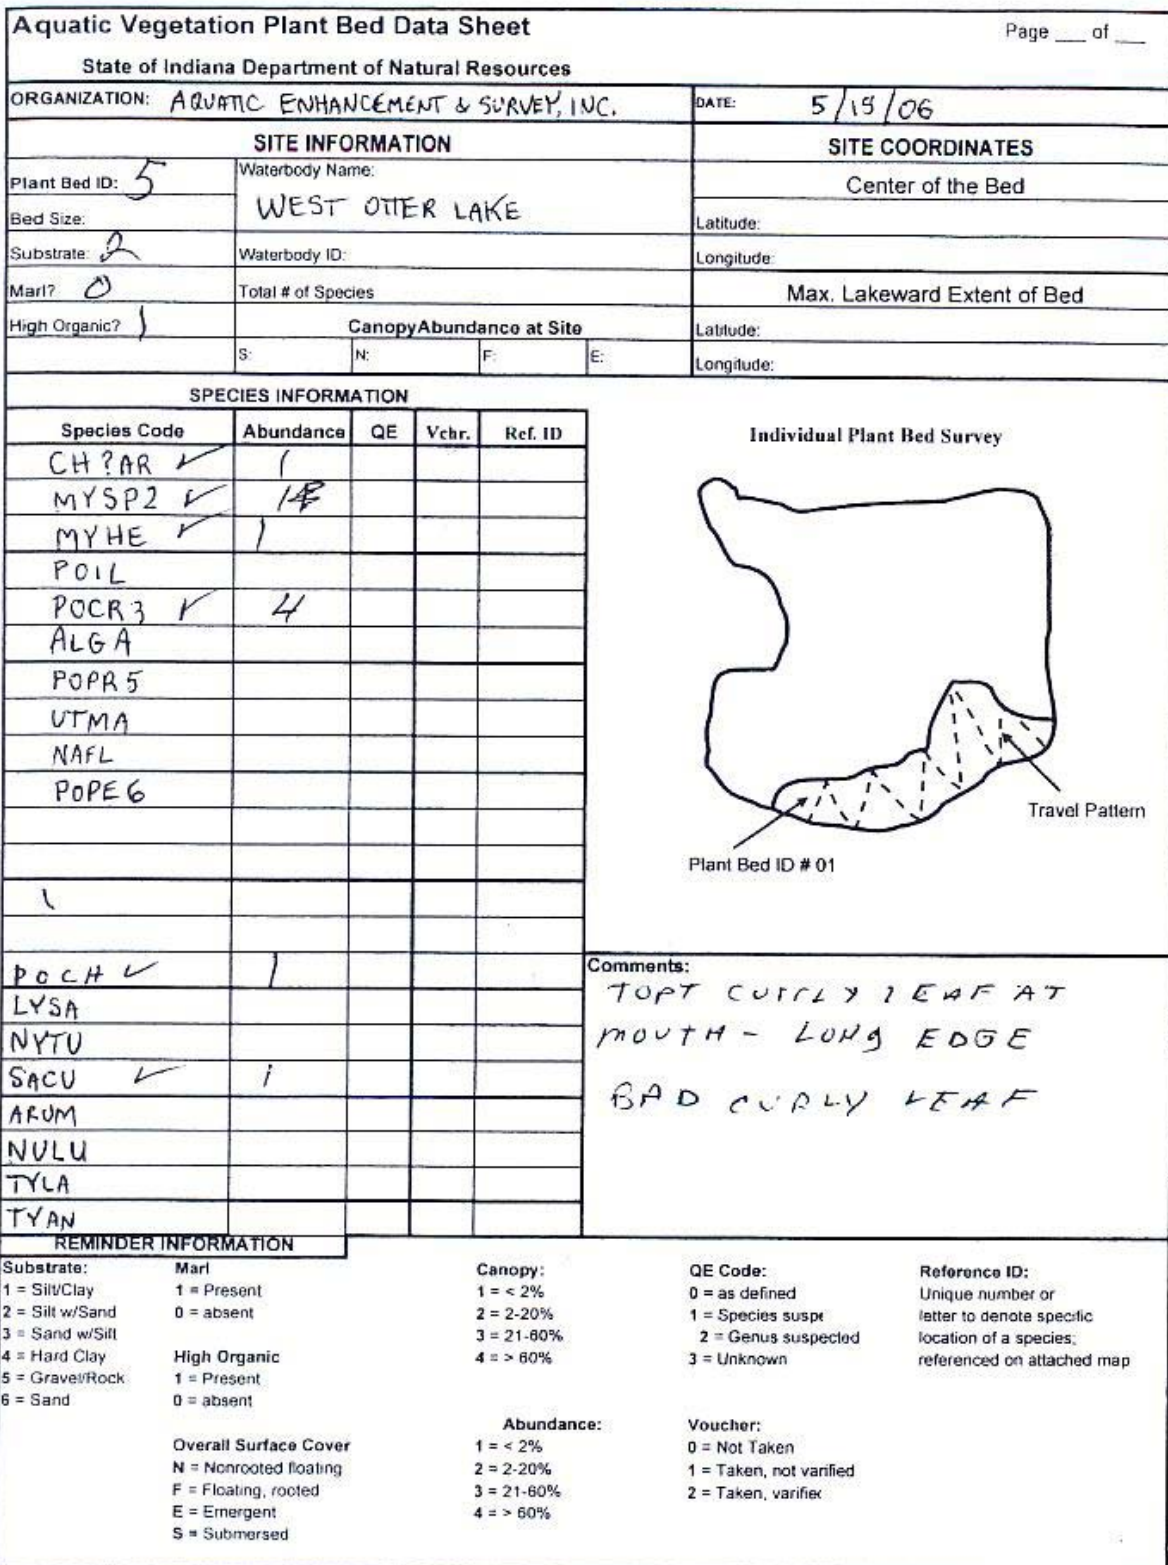 Aquatic Vegetation Plant Bed Data Sheet
Page ___ of ___
State of Indiana Department of Natural Resources
ORGANIZATION: AQUATIC ENHANCEMENT & SURVEY, INC.
DATE: 5/19/06
SITE INFORMATION
SITE COORDINATES
Plant Bed ID: 5
Waterbody Name:
WEST OTTER LAKE
Center of the Bed
Bed Size:
Latitude:
Substrate: 2
Waterbody ID:
Longitude:
Marl? 0
Total # of Species
Max. Lakeward Extent of Bed
High Organic? 1
Canopy Abundance at Site
Latitude:
S: N: F: E:
Longitude:
SPECIES INFORMATION
Species Code Abundance QE Vchr. Ref. ID
CH?AR ✓ 1
MYSP2 ✓ 1
MYHE ✓ 1
POIL
POCR3 ✓ 4
ALGA
POPR5
UTMA
NAFL
POPE6
POCH ✓ 1
LYSA
NYTU
SACU ✓ 1
ARUM
NULU
TYLA
TYAN
Individual Plant Bed Survey
Travel Pattern
Plant Bed ID # 01
Comments:
CURLY LEAF AT
MOUTH - LONG EDGE
BAD CURLY LEAF
REMINDER INFORMATION
Substrate:
1 = Silt/Clay
2 = Silt w/Sand
3 = Sand w/Silt
4 = Hard Clay
5 = Gravel/Rock
6 = Sand
Marl
1 = Present
0 = absent
High Organic
1 = Present
0 = absent
Overall Surface Cover
N = Nonrooted floating
F = Floating, rooted
E = Emergent
S = Submersed
Canopy:
1 = < 2%
2 = 2-20%
3 = 21-60%
4 = > 60%
Abundance:
1 = < 2%
2 = 2-20%
3 = 21-60%
4 = > 60%
QE Code:
0 = as defined
1 = Species suspe
2 = Genus suspected
3 = Unknown
Voucher:
0 = Not Taken
1 = Taken, not varified
2 = Taken, varifiec
Reference ID:
Unique number or
letter to denote specific
location of a species;
referenced on attached map